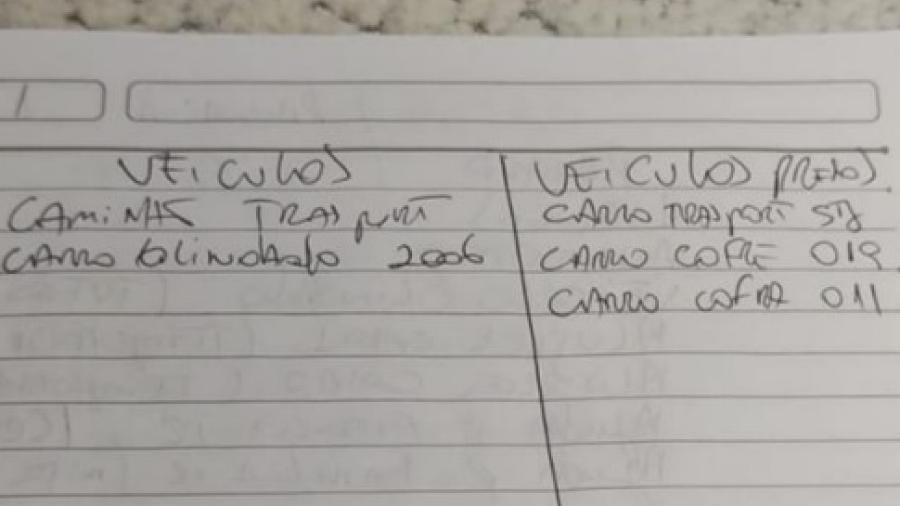 VEICULOS
CAMINHS TRASPORT
CARRO bLINDADO 2006
VEICULOS PRETOS
CARRO TRASPORT
CARRO COFRE 019
CARRO COFRE 011